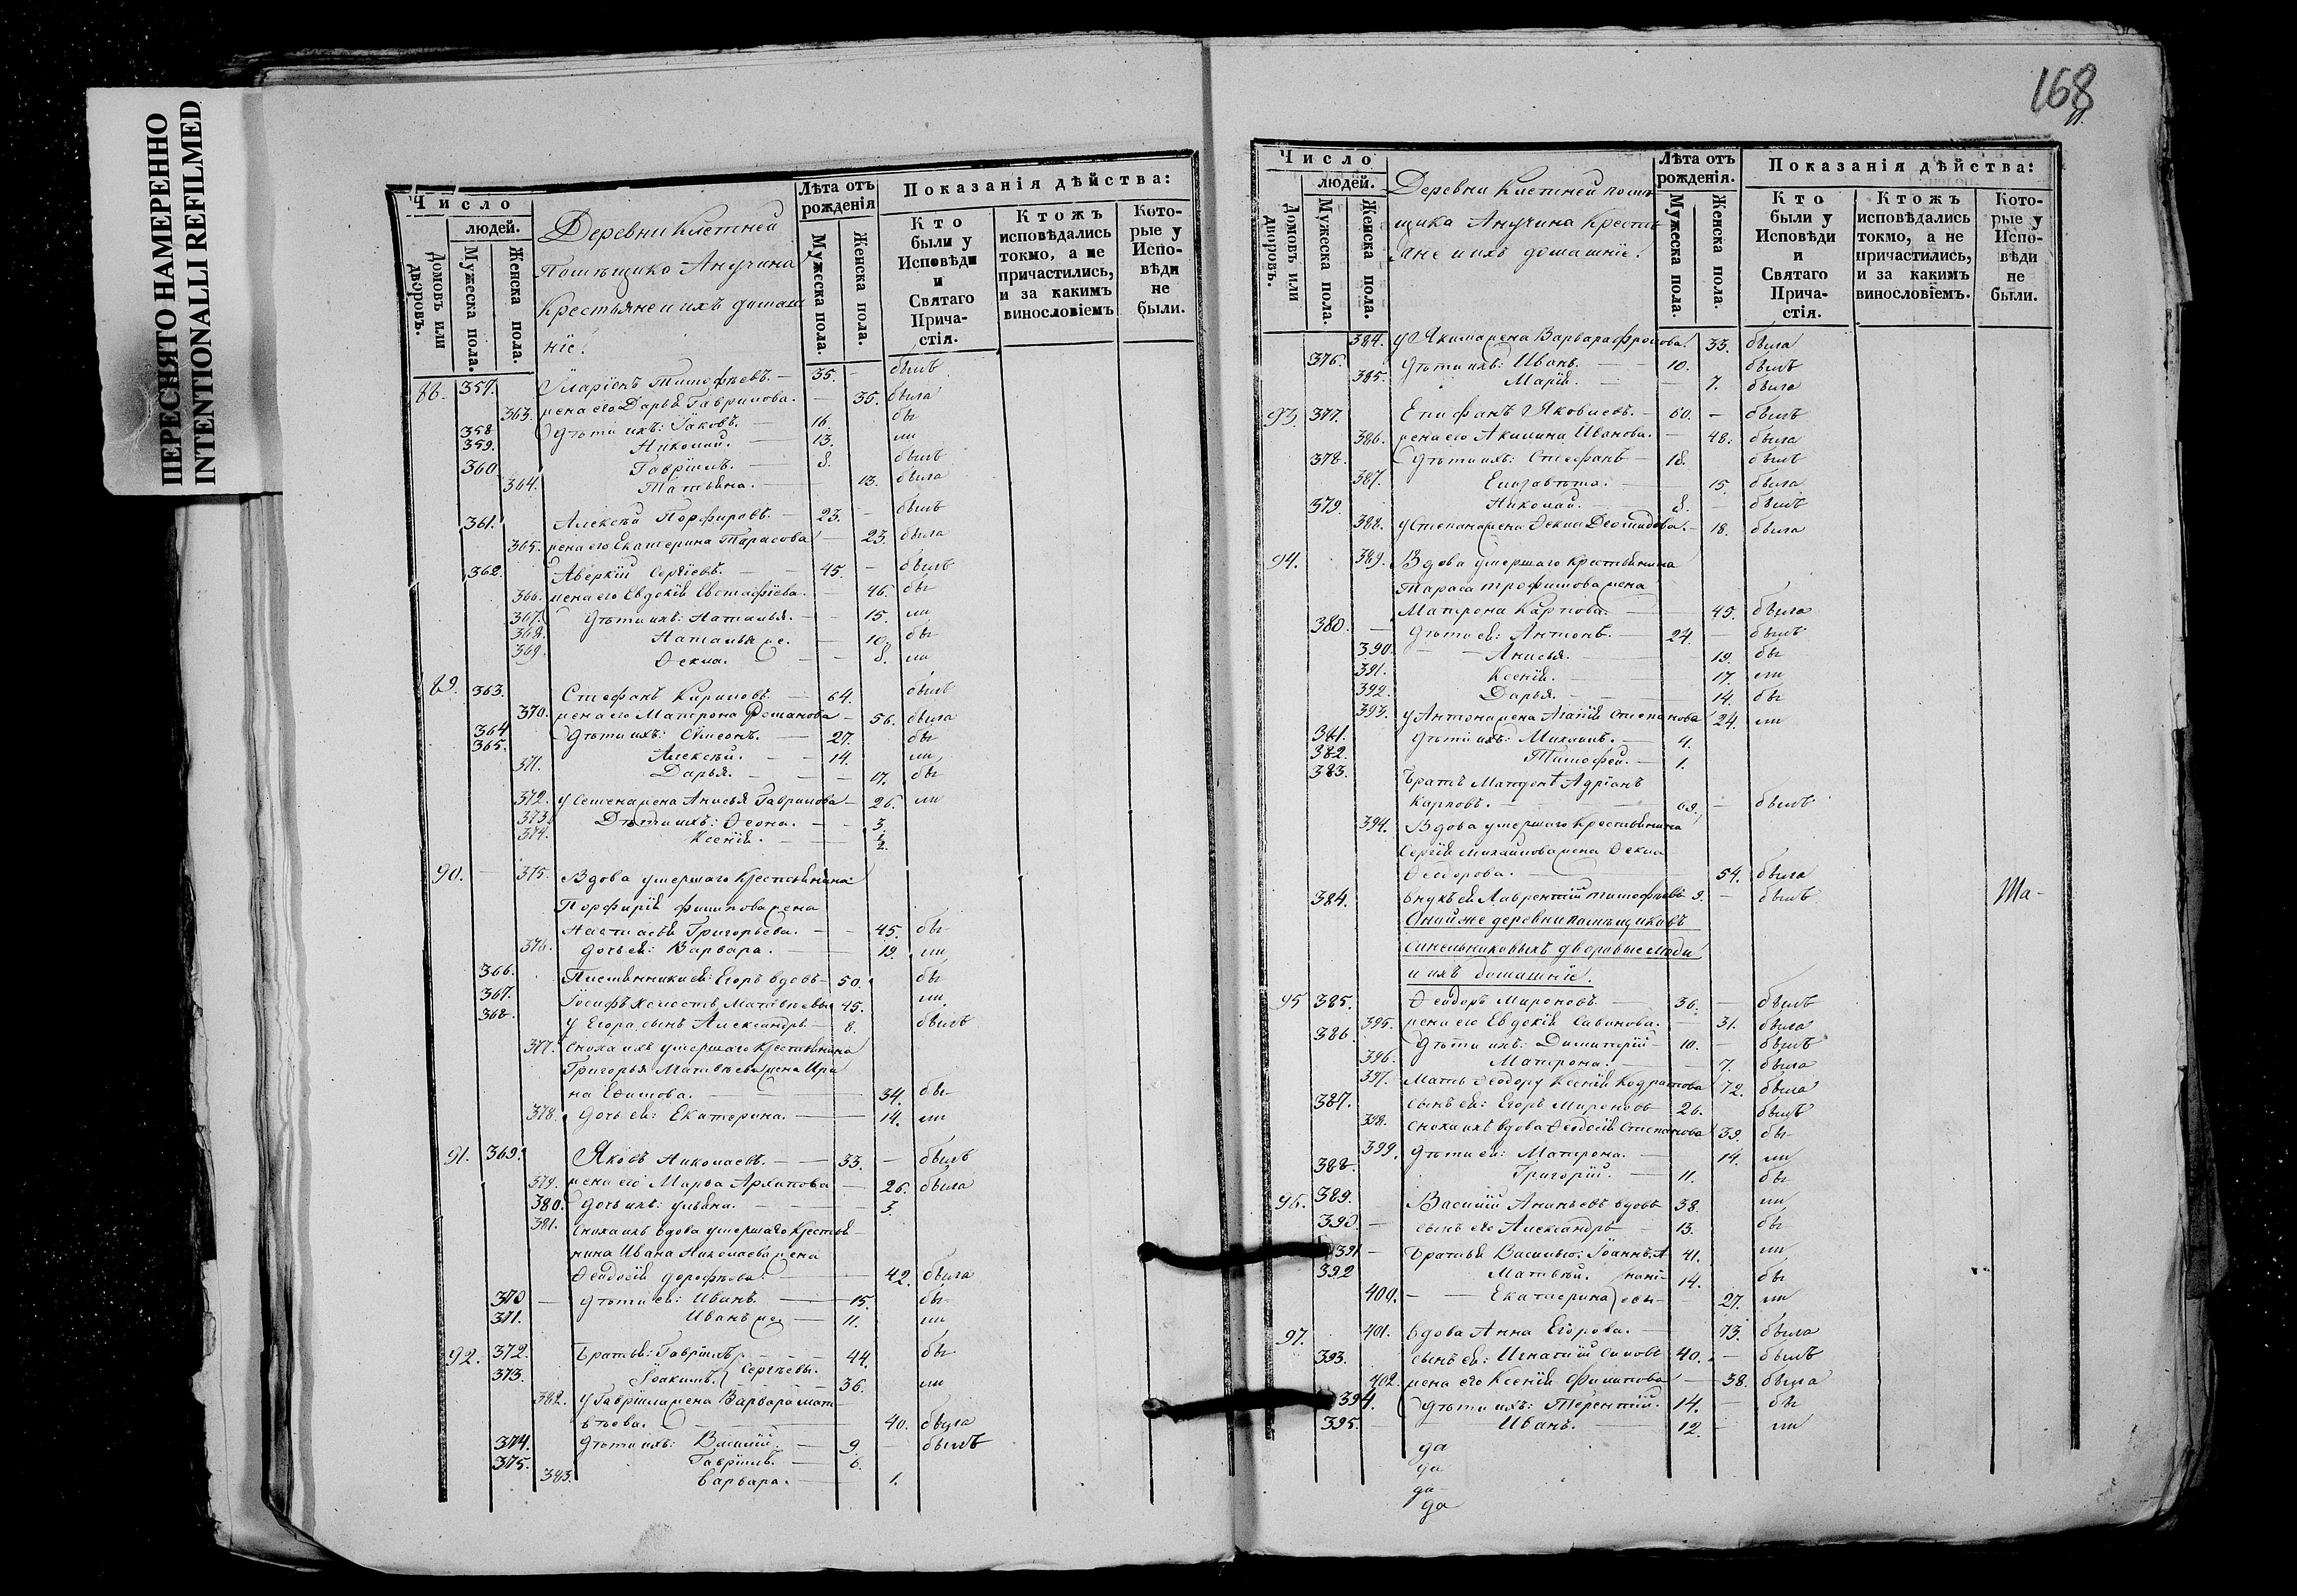 ПЕРЕСНЯТО НАМЕРЕННО
INTENTIONALLI REFILMED
168
Число
людей.
Домовъ или дворовъ.
Мужеска пола.
Женска пола.
Деревни Клетней
Помѣщико Анучина
Крестьяне и ихъ домаш
ніе.
Лѣта отъ рожденія
Мужска пола.
Женска пола.
Показанія дѣйства:
Кто были у Исповѣди и Святаго Прича-стія.
Ктожъ исповѣдались токмо, а не причастились, и за какимъ винословіемъ
Кото-рые у Испо-вѣди не были.
88. 357. Иларіонъ Тимофеевъ. — 35. — былъ
363. жена его Дарья Гаврилова. — 35. была
358. Дѣти ихъ: Іаковъ. — 16. бы
359. Николай. — 13. ли
360 Гавріилъ. — 8. былъ
364. Татьяна. — 13. была
361. Алексѣй Порфировъ. — 23. — былъ
365. жена его Екатерина Тарасова — 23. была
362. Аверкій Сергіевъ. — 45. — былъ
366. жена его Евдокія Евстафіева. — 46. бы
367. Дѣти ихъ: Наталья. — 15. ли
368. Наталья же. — 10. бы
369. Ѳекла. — 8. ли
89. 363. Стефанъ Кириловъ. — 64. былъ
370. жена его Матрона Романова — 56. была
364 Дѣти ихъ: Симеонъ. — 27. бы
365. Алексѣй. — 14. ли
371. Дарья. — 17. бы
372. у Семена жена Анисья Гаврилова — 26. ли
373. Дѣти ихъ: Ѳеона. — 3.
374. Ксенія. — 2.
90. — 375. Вдова умершаго Крестьянина
Порфирія Филипова жена
Настасья Григорьева. — 45. бы
376. дочь ея: Варвара. — 19. ли
366. Егоръ вдовъ — 50. бы
367. Іосифъ холостъ Матвѣевы 45. ли
368. У Егора сынъ Александръ — 8. былъ
377. Сноха ихъ умершаго Крестьянина
Григорья Матвѣева жена Ири
на Ефимова. — 34. бы
378. дочь ея: Екатерина. — 14. ли
91. 369. Яковъ Николаевъ. — 33. — былъ
379. жена его Марѳа Архипова — 26. была
380. дочь ихъ: Ульяна. — 3.
381. Сноха ихъ вдова умершаго Крестья
нина Ивана Николаева жена
Ѳеодосія Дорофеева. — 42. была
370 — дѣти ея: Иванъ. — 15. бы
371. Иванъ же — 11. ли
92. 372. Братья: Гавріилъ — 44. бы
373. Іоакимъ. } Сергѣевы. — 36. ли
382. у Гавріила жена Варвара Мат
вѣева. — 40. была
374. дѣти ихъ: Василій. — 9. — былъ
375. Гавріилъ. — 6.
383. Варвара. — 1.
Число
людей.
Домовъ или дворовъ.
Мужеска пола.
Женска пола.
Деревни Клетней помѣ
щика Анучина Крестья
яне и ихъ домашніе.
Лѣта отъ рожденія.
Мужеска пола.
Женска пола.
Показанія дѣйства:
Кто были у Исповѣди и Святаго Прича-стія.
Ктожъ исповѣдались токмо, а не причастились, и за какимъ винословіемъ.
Кото-рые у Испо-вѣди не были.
384. у Якима жена Варвара Фролова. 33. была
376. Дѣти ихъ: Иванъ. — 10. былъ
385. Марія. — 7. была
93. 377. Епифанъ Яковлевъ. — 60. — былъ
386. жена его Акилина Иванова. — 48. была
378. Дѣти ихъ: Стефанъ — 18. былъ
387. Елизавѣта. — 15. была
379. Николай. — 8. — былъ
388. у Степана жена Ѳекла Деомидова. — 18. была
94. 389. Вдова умершаго Крестьянина
Тараса Трофимова жена
Матрона Карпова. — 45. была
380. — дѣти ея: Антонъ. — 24. — былъ
390. — Анисья. — 19. бы
391. Ксенія. — 17. ли
392. Дарья. — 14. бы
393. у Антона жена Агапія Степанова 24. ли
381. дѣти ихъ: Михаилъ. — 4.
382. Тимофей. — 1.
383. Братъ Матроны Адріанъ
Карповъ. — 69. — былъ
394. Вдова умершаго Крестьянина
Сергія Михайлова жена Ѳекла
Ѳедорова. — 54. была
384. внукъ ей Лаврентій Тимофеевъ 9. — былъ Ма-
Онайже деревни помѣщиковъ
Синельниковыхъ дворовые люди
и ихъ домашніе.
95 385. Ѳеодоръ Мироновъ. — 36. — былъ
395. жена его Евдокія Савинова. — 31. была
386 Дѣти ихъ: Димитрій — 10. — былъ
396. Матрона. — 7. была
397. Мать Ѳеодору Ксенія Кодратова 72. была
387. сынъ ея: Егоръ Мироновъ 26. былъ
398. Сноха ихъ вдова Ѳеодосія Степанова 39. бы
399. дѣти ея: Матрона. — 14. ли
388. Григорій. — 11. бы
96. 389. Василій Ананьевъ вдовъ 38. ли
390 — сынъ его Александръ — 13. бы
391 — Братья Василью: Іоаннъ. А 41. ли
392 Матвѣй. нані- 14. бы
400. — Екатерина } евы — 27. ли
97. 401. вдова Анна Егорова. — 73. была
393. сынъ ея: Игнатій Силовъ 40. — былъ
402. жена его Ксенія Филипова — 38. была
394. Дѣти ихъ: Терентій. 14. — бы
395. Иванъ. — 12. — ли
да
да
да
да